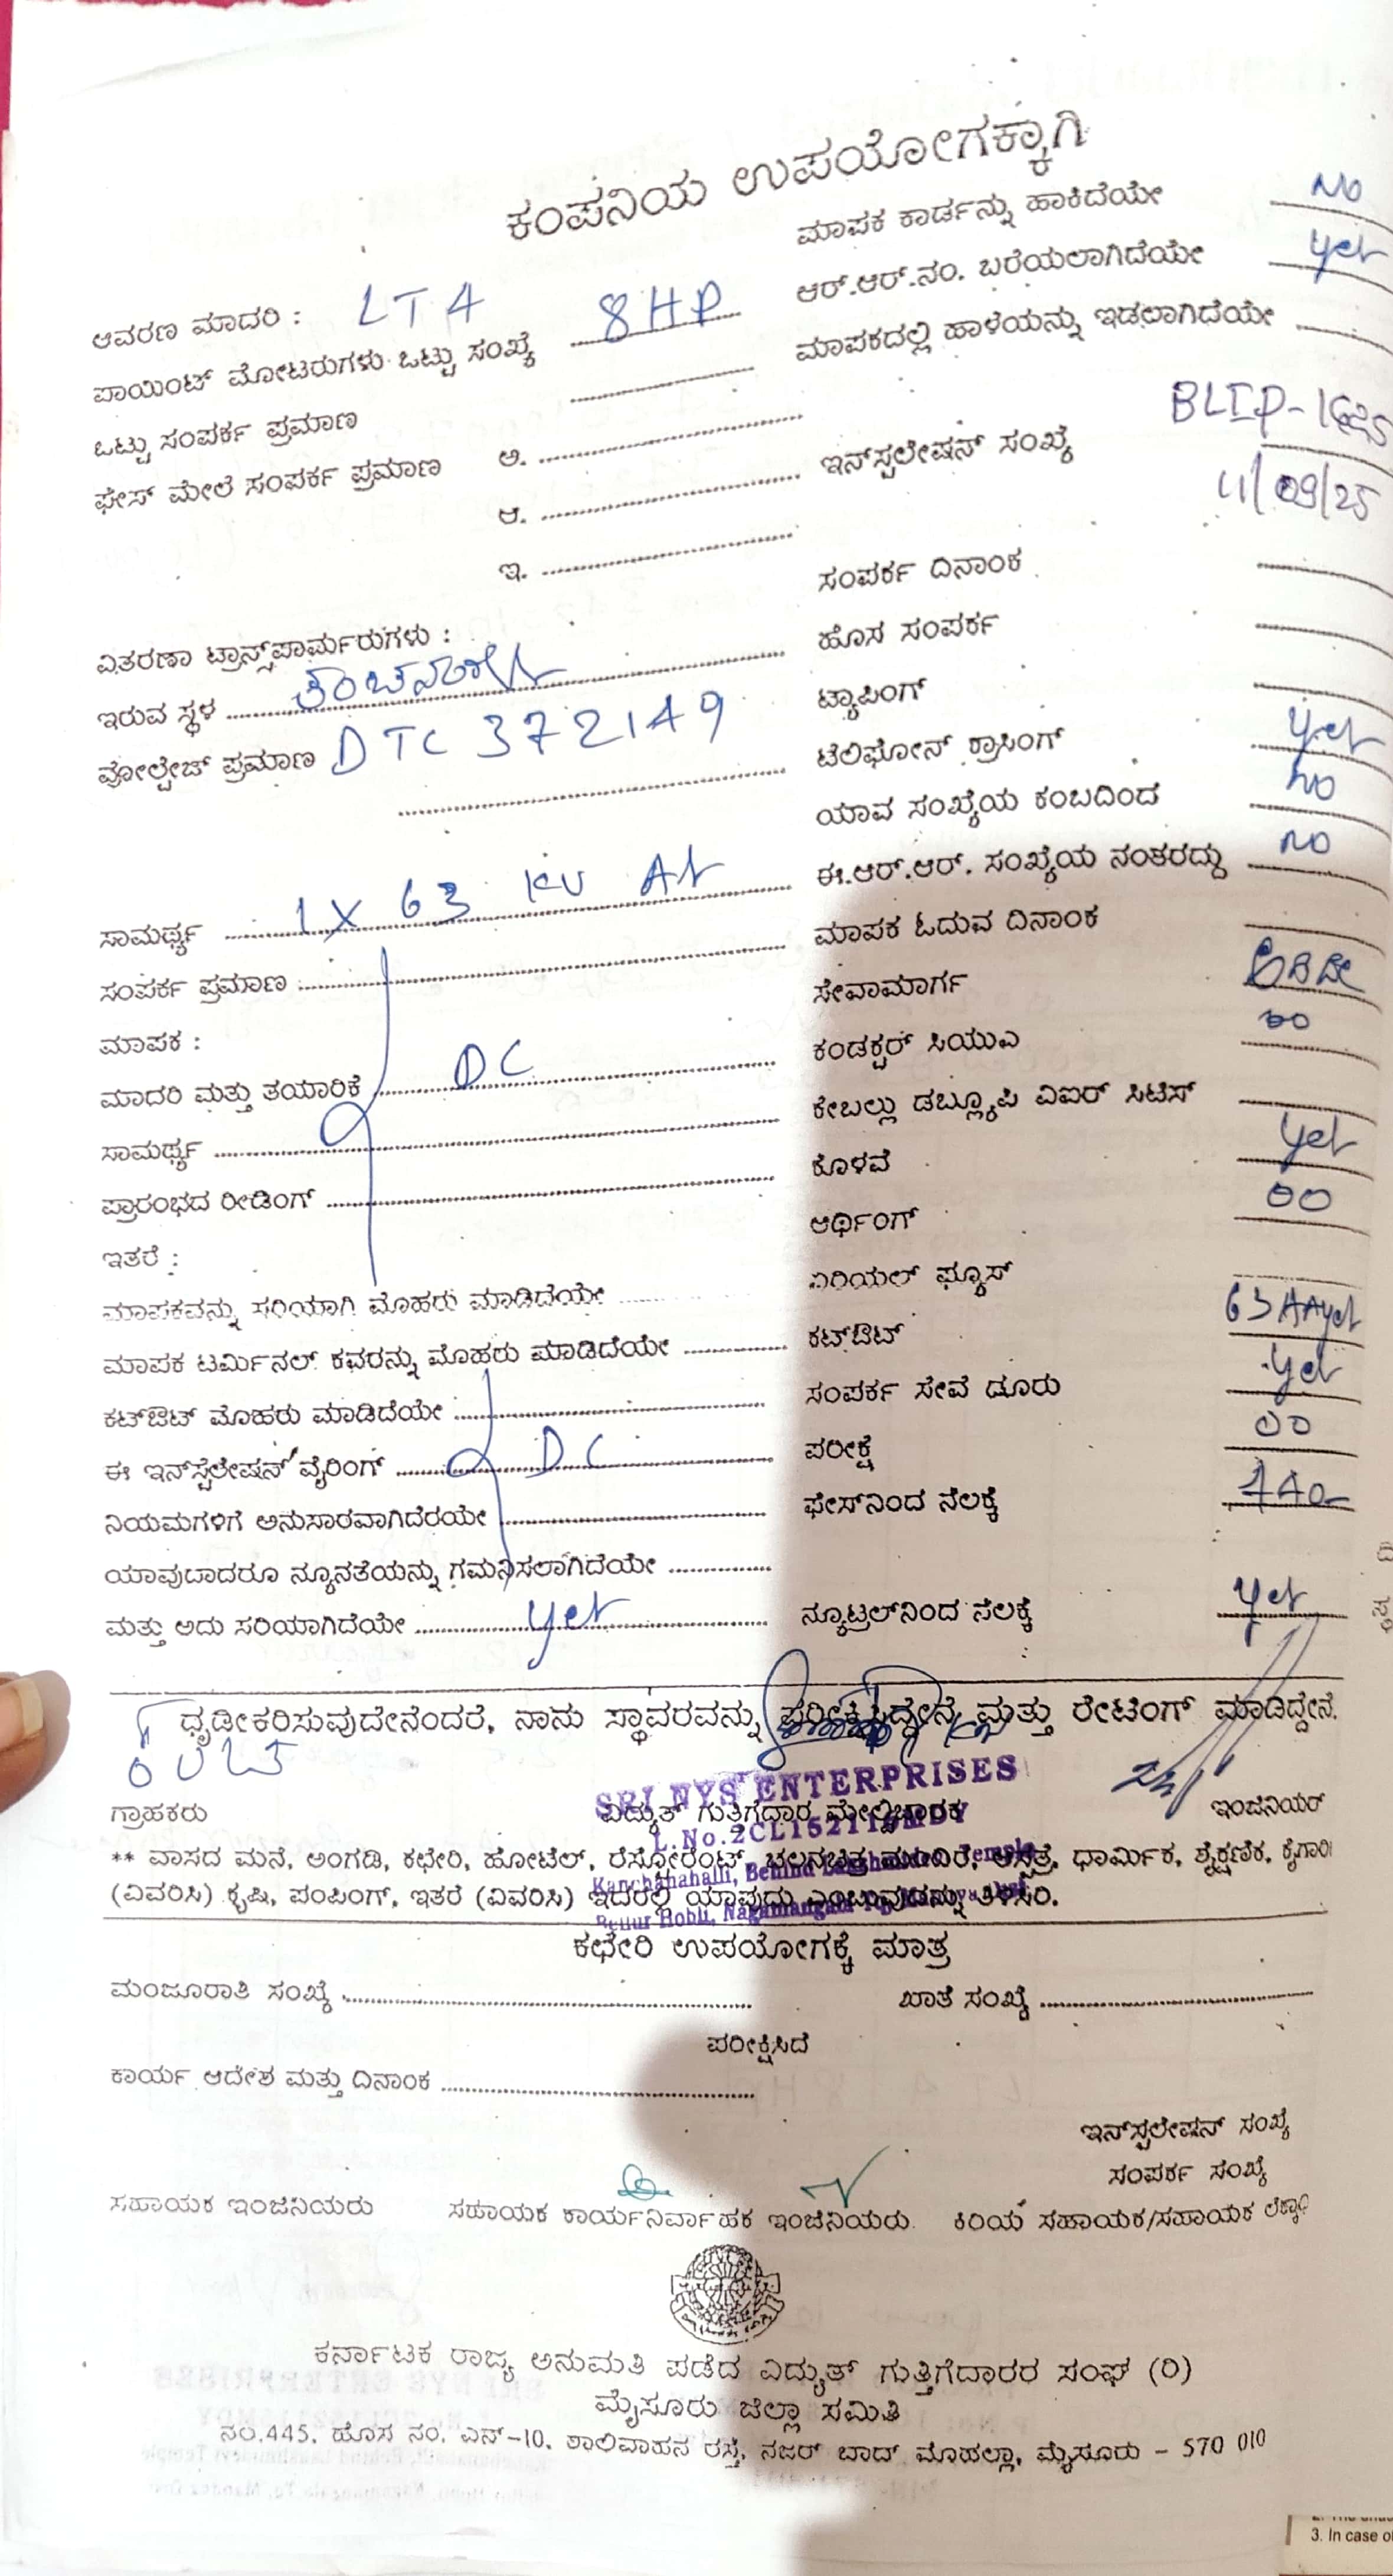 ಕಂಪನಿಯ ಉಪಯೋಗಕ್ಕಾಗಿ
ಆವರಣ ಮಾದರಿ : LT 4
ಪಾಯಿಂಟ್ ಮೋಟರುಗಳು ಒಟ್ಟು ಸಂಖ್ಯೆ 8 HP
ಒಟ್ಟು ಸಂಪರ್ಕ ಪ್ರಮಾಣ
ಫೇಸ್ ಮೇಲೆ ಸಂಪರ್ಕ ಪ್ರಮಾಣ ಅ.
ಆ.
ಇ.
ಮಾಪಕ ಕಾರ್ಡನ್ನು ಹಾಕಿದೆಯೇ NO
ಆರ್.ಆರ್.ನಂ. ಬರೆಯಲಾಗಿದೆಯೇ yes
ಮಾಪಕದಲ್ಲಿ ಹಾಳೆಯನ್ನು ಇಡಲಾಗಿದೆಯೇ
ಇನ್‌ಸ್ಟಲೇಷನ್ ಸಂಖ್ಯೆ
11/09/25
ಸಂಪರ್ಕ ದಿನಾಂಕ
ಹೊಸ ಸಂಪರ್ಕ
ಟ್ಯಾಪಿಂಗ್
ಟೆಲಿಫೋನ್ ಕ್ರಾಸಿಂಗ್ yes
ಯಾವ ಸಂಖ್ಯೆಯ ಕಂಬದಿಂದ no
ಈ.ಆರ್.ಆರ್. ಸಂಖ್ಯೆಯ ನಂತರದ್ದು NO
ಮಾಪಕ ಓದುವ ದಿನಾಂಕ
ಸೇವಾಮಾರ್ಗ
ಕಂಡಕ್ಟರ್ ಸಿಯುಎ
ಕೇಬಲ್ಲು ಡಬ್ಲ್ಯೂಪಿ ವಿಐಆರ್ ಸಿಟಿಸ್
ಕೊಳವೆ yes
ಆರ್ಥಿಂಗ್ 00
ಏರಿಯಲ್ ಫ್ಯೂಸ್
ಕಟ್‌ಔಟ್
ಸಂಪರ್ಕ ಸೇವೆ ಡೂರು yes
ಪರೀಕ್ಷೆ 00
ಫೇಸ್‌ನಿಂದ ನೆಲಕ್ಕೆ 440
ನ್ಯೂಟ್ರಲ್‌ನಿಂದ ನೆಲಕ್ಕೆ yes
ವಿತರಣಾ ಟ್ರಾನ್ಸ್‌ಫಾರ್ಮರುಗಳು :
ಇರುವ ಸ್ಥಳ
ವೋಲ್ಟೇಜ್ ಪ್ರಮಾಣ DTC 372149
ಸಾಮರ್ಥ್ಯ 1 X 63 KV
ಸಂಪರ್ಕ ಪ್ರಮಾಣ :
ಮಾಪಕ :
ಮಾದರಿ ಮತ್ತು ತಯಾರಿಕೆ DC
ಸಾಮರ್ಥ್ಯ
ಪ್ರಾರಂಭದ ರೀಡಿಂಗ್
ಇತರೆ :
ಮಾಪಕವನ್ನು ಸರಿಯಾಗಿ ಮೊಹರು ಮಾಡಿದೆಯೇ
ಮಾಪಕ ಟರ್ಮಿನಲ್ ಕವರನ್ನು ಮೊಹರು ಮಾಡಿದೆಯೇ
ಕಟ್‌ಔಟ್ ಮೊಹರು ಮಾಡಿದೆಯೇ
ಈ ಇನ್‌ಸ್ಟಲೇಷನ್ ವೈರಿಂಗ್ DC
ನಿಯಮಗಳಿಗೆ ಅನುಸಾರವಾಗಿದೆರೆಯೇ
ಯಾವುದಾದರೂ ನ್ಯೂನತೆಯನ್ನು ಗಮನಿಸಲಾಗಿದೆಯೇ
ಮತ್ತು ಅದು ಸರಿಯಾಗಿದೆಯೇ yes
ಧೃಡೀಕರಿಸುವುದೇನೆಂದರೆ, ನಾನು ಸ್ಥಾವರವನ್ನು ಪರೀಕ್ಷಿಸಿದ್ದೇನೆ ಮತ್ತು ರೇಟಿಂಗ್ ಮಾಡಿದ್ದೇನೆ.
SRI NYS ENTERPRISES
ಗ್ರಾಹಕರು ವಿದ್ಯುತ್ ಗುತ್ತಿಗೆದಾರ ಮೇಲ್ವಿಚಾರಕ ಇಂಜಿನಿಯರ್
** ವಾಸದ ಮನೆ, ಅಂಗಡಿ, ಕಛೇರಿ, ಹೋಟೆಲ್, ರೆಸ್ಟೋರೆಂಟ್, ಚಲನಚಿತ್ರ ಮಂದಿರ, ಆಸ್ಪತ್ರೆ, ಧಾರ್ಮಿಕ, ಶೈಕ್ಷಣಿಕ,
(ವಿವರಿಸಿ) ಕೃಷಿ, ಪಂಪಿಂಗ್, ಇತರೆ (ವಿವರಿಸಿ) ಇದರಲ್ಲಿ ಯಾವುದು ಎಂಬುವುದನ್ನು ತಿಳಿಸಿರಿ.
ಕಛೇರಿ ಉಪಯೋಗಕ್ಕೆ ಮಾತ್ರ
ಮಂಜೂರಾತಿ ಸಂಖ್ಯೆ ಖಾತೆ ಸಂಖ್ಯೆ
ಪರೀಕ್ಷಿಸಿದೆ
ಕಾರ್ಯ ಆದೇಶ ಮತ್ತು ದಿನಾಂಕ
ಇನ್‌ಸ್ಟಲೇಷನ್ ಸಂಖ್ಯೆ
ಸಂಪರ್ಕ ಸಂಖ್ಯೆ
ಸಹಾಯಕ ಇಂಜಿನಿಯರು ಸಹಾಯಕ ಕಾರ್ಯನಿರ್ವಾಹಕ ಇಂಜಿನಿಯರು ಕಿರಿಯ ಸಹಾಯಕ/ಸಹಾಯಕ
ಕರ್ನಾಟಕ ರಾಜ್ಯ ಅನುಮತಿ ಪಡೆದ ವಿದ್ಯುತ್ ಗುತ್ತಿಗೆದಾರರ ಸಂಘ (ರಿ)
ಮೈಸೂರು ಜಿಲ್ಲಾ ಸಮಿತಿ
ನಂ.445, ಹೊಸ ನಂ. ಎನ್-10, ಶಾಲಿವಾಹನ ರಸ್ತೆ, ನಜರ್ ಬಾದ್ ಮೊಹಲ್ಲಾ, ಮೈಸೂರು - 570 010
3. In case